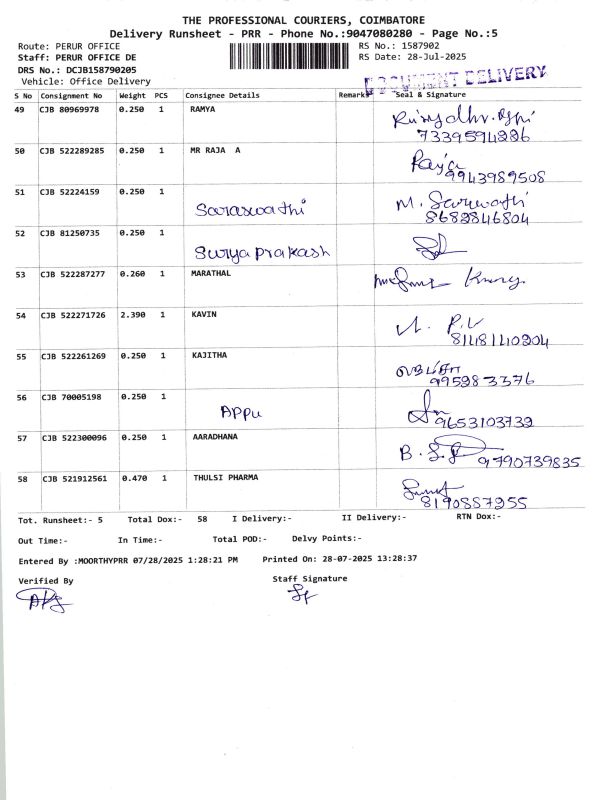 THE PROFESSIONAL COURIERS, COIMBATORE
Delivery Runsheet - PRR - Phone No.:9047080280 - Page No.:5
Route: PERUR OFFICE RS No.: 1587902
Staff: PERUR OFFICE DE RS Date: 28-Jul-2025
DRS No.: DCJB158790205
Vehicle: Office Delivery
DOCUMENT DELIVERY
S No Consignment No Weight PCS Consignee Details Remarks Seal & Signature
49 CJB 80969978 0.250 1 RAMYA
7339594886
50 CJB 522289285 0.250 1 MR RAJA A Raja
9943989508
51 CJB 52224159 0.250 1 Saraswathi M.
8682846804
52 CJB 81250735 0.250 1 Surya prakash
53 CJB 522287277 0.260 1 MARATHAL
54 CJB 522271726 2.390 1 KAVIN P.V
8148140204
55 CJB 522261269 0.250 1 KAJITHA
9952833376
56 CJB 70005198 0.250 1 APPU
9653103732
57 CJB 522300096 0.250 1 AARADHANA B.
9790739835
58 CJB 521912561 0.470 1 THULSI PHARMA
8190887255
Tot. Runsheet:- 5 Total Dox:- 58 I Delivery:- II Delivery:- RTN Dox:-
Out Time:- In Time:- Total POD:- Delvy Points:-
Entered By :MOORTHYPRR 07/28/2025 1:28:21 PM Printed On: 28-07-2025 13:28:37
Verified By Staff Signature